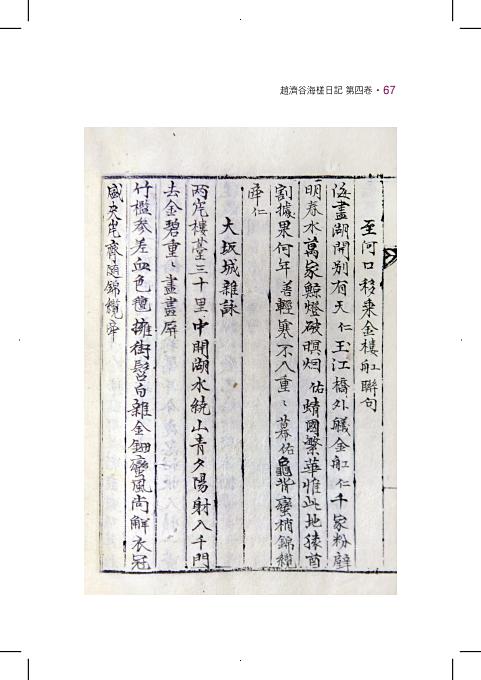 趙濟谷海槎日記 第四卷 • 67
至河口移乘金樓舡聯句
海盡湖開別有天 仁 玉江橋外艤金舡 仁 千家粉壁
明春水萬家鯨燈破暝烟 佑 蜻國繁華惟此地猿酋
割據果何年 善 輕寒不入重〻幕 佑 龜背蠻梢錦纜
牽 仁
大坂城雜詠
兩岸樓臺三十里中開湖水繞山青夕陽射入千門
去金碧重〻畫畫屏
竹檻參差血色氊擁街髫白雜金鈿蠻風尚解衣冠
盛夾岸齊隨錦纜牽